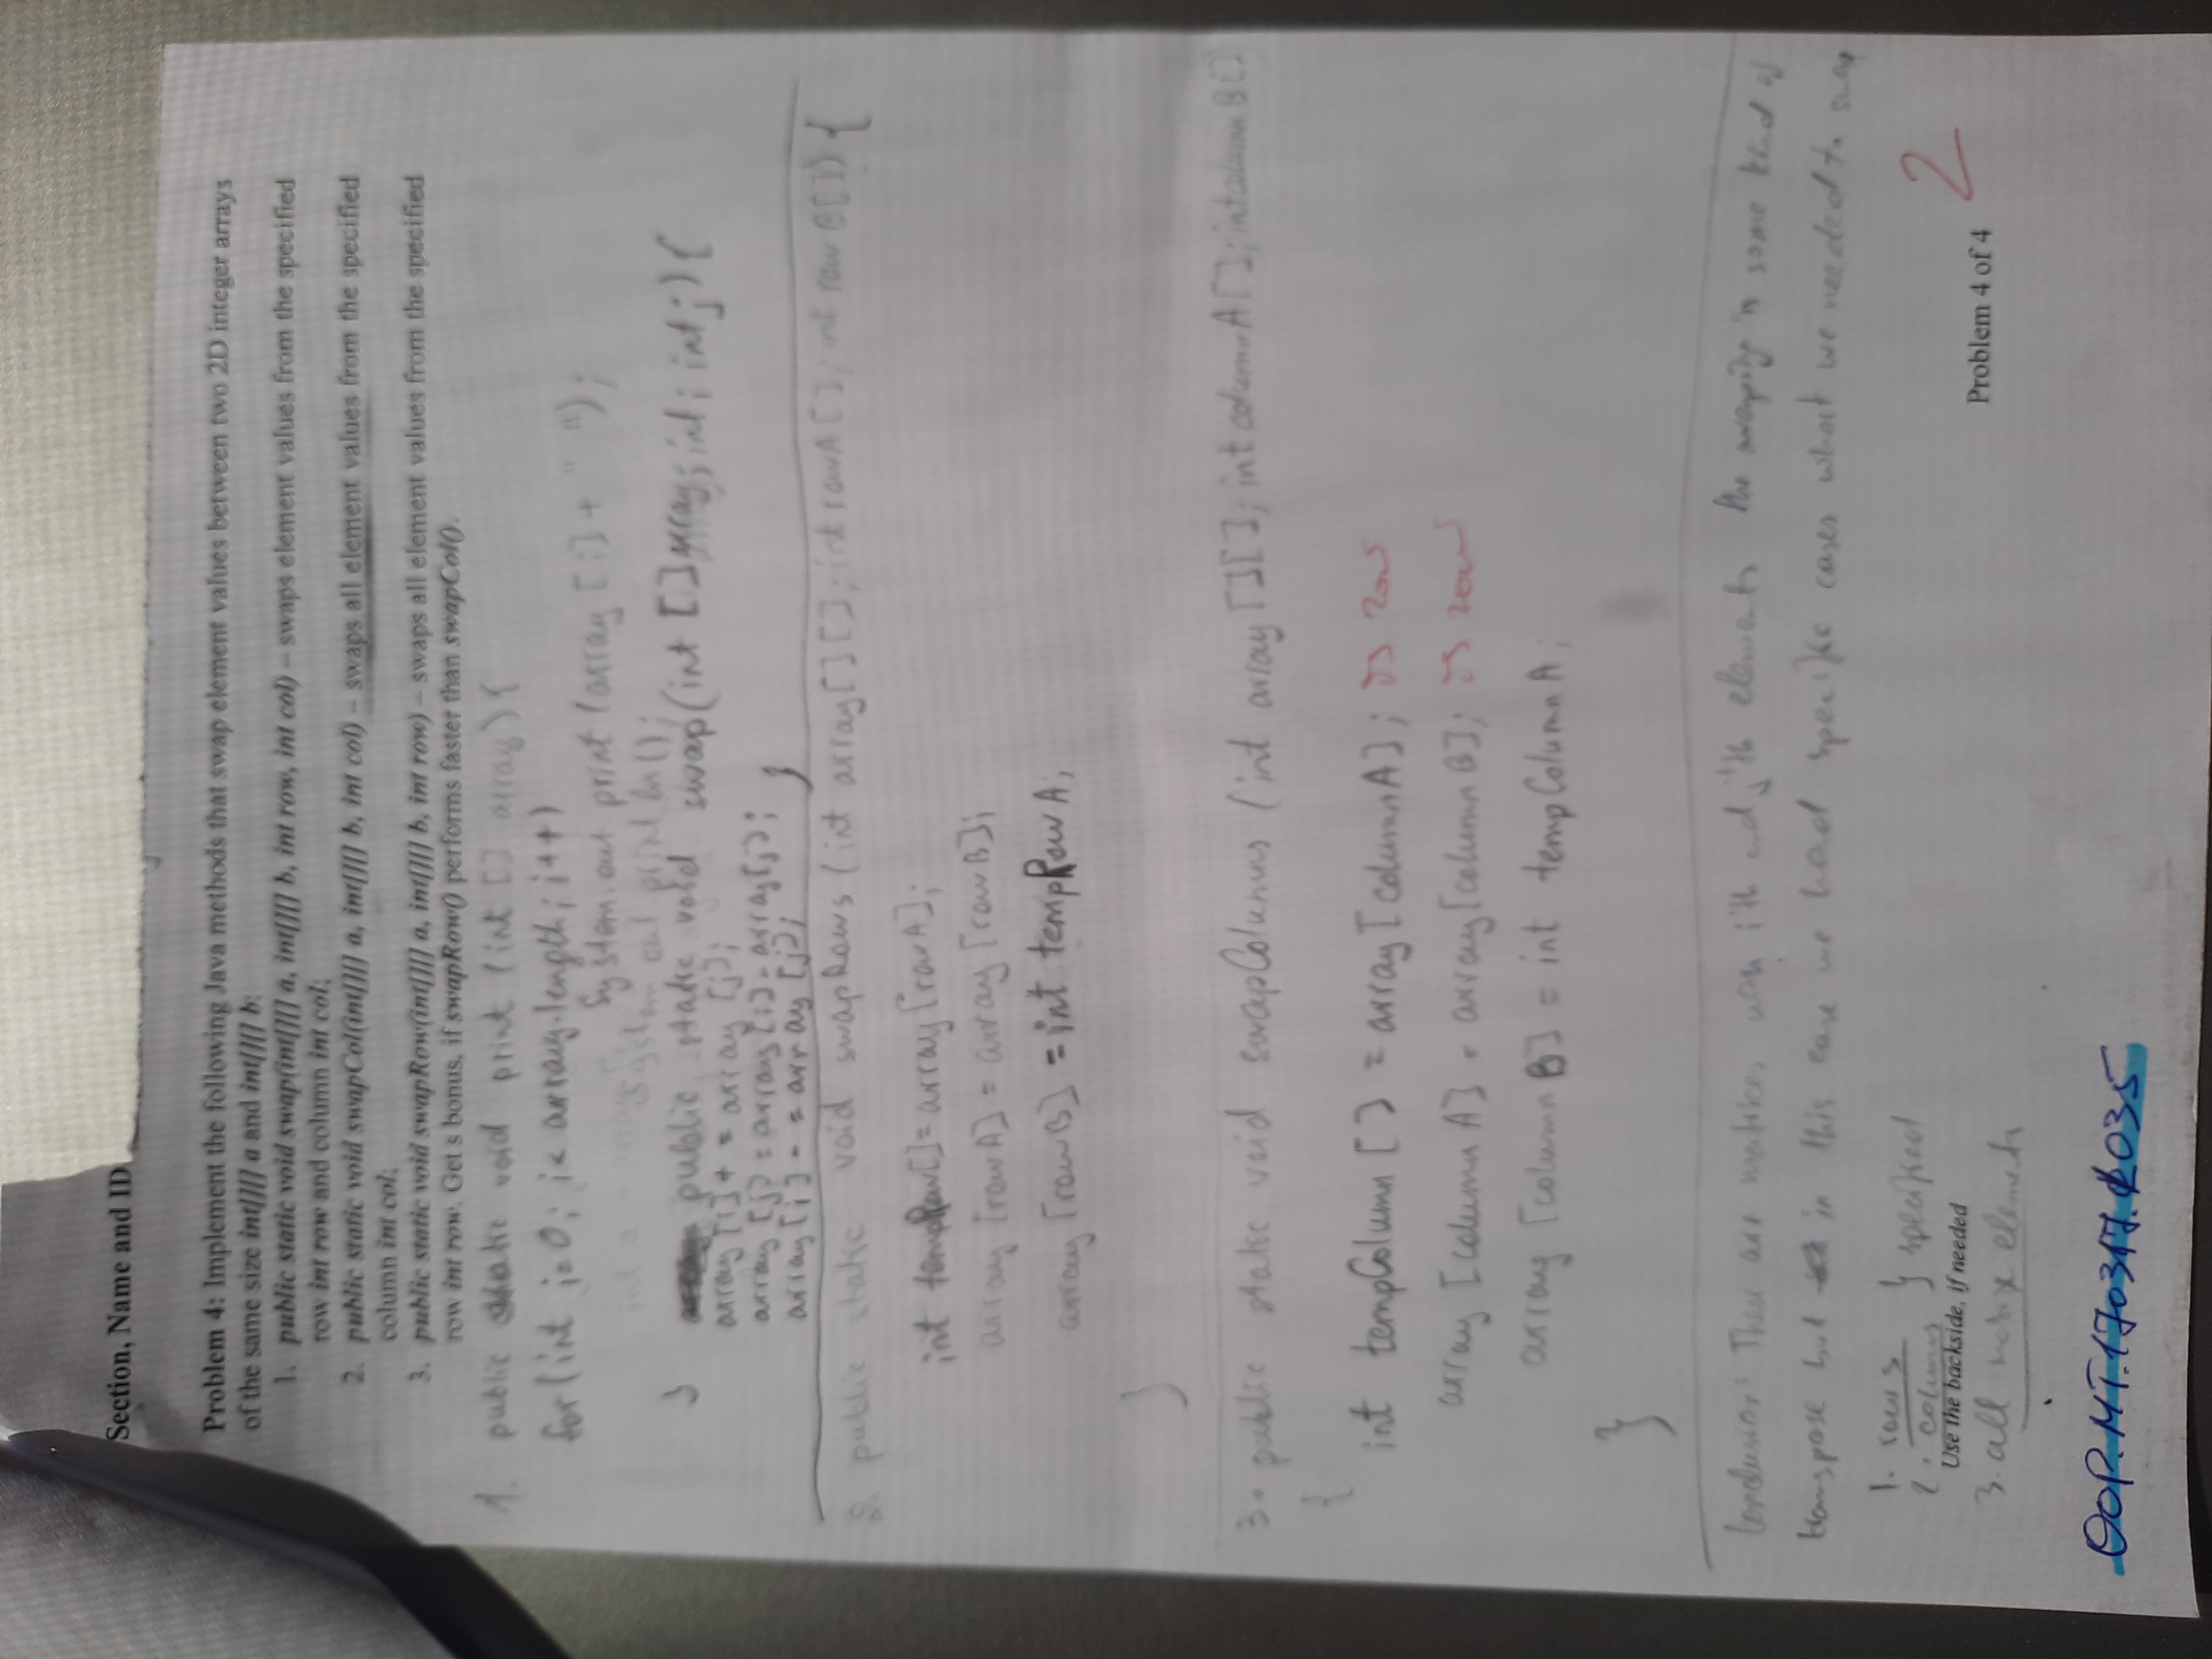 Section, Name and ID
Problem 4: Implement the following Java methods that swap element values between two 2D integer arrays
of the same size int[][] a and int[][] b:
1. public static void swap(int[][] a, int[][] b, int row, int col) – swaps element values from the specified
row int row and column int col;
2. public static void swapCol(int[][] a, int[][] b, int col) – swaps all element values from the specified
column int col;
3. public static void swapRow(int[][] a, int[][] b, int row) – swaps all element values from the specified
row int row. Get s bonus, if swapRow() performs faster than swapCol().
1. public static void print (int [] array) {
for (int i=0; i< array.length; i++)
System.out print (array [i] + " ");
System out print ln();
} public static void swap(int [] array; int i int j) {
array [i] + = array [j];
array [j] = array [i] - array[j];
array [i] - = array [j]; }
2. public static void swapRows (int array[][]; int rowA[]; int rowB[]) {
int tempRow[] = array [rowA];
array [rowA] = array [rowB];
array [rowB] = int tempRowA;
}
3. public static void swapColumns (int array [][]; int columnA[]; int columnB[]
{
int tempColumn [] = array [columnA]; is row
array [columnA] = array [columnB]; is row
array [columnB] = int tempColumnA;
}
Conclusion: These are matrices with i'th and j'th elements the swaping is some kind of
transpose but in this case we had specific cases what we needed to swap
1. rows } specified
2. columns
Use the backside, if needed
3. all matrix elements
Problem 4 of 4
2
OOP.MT.170317.035